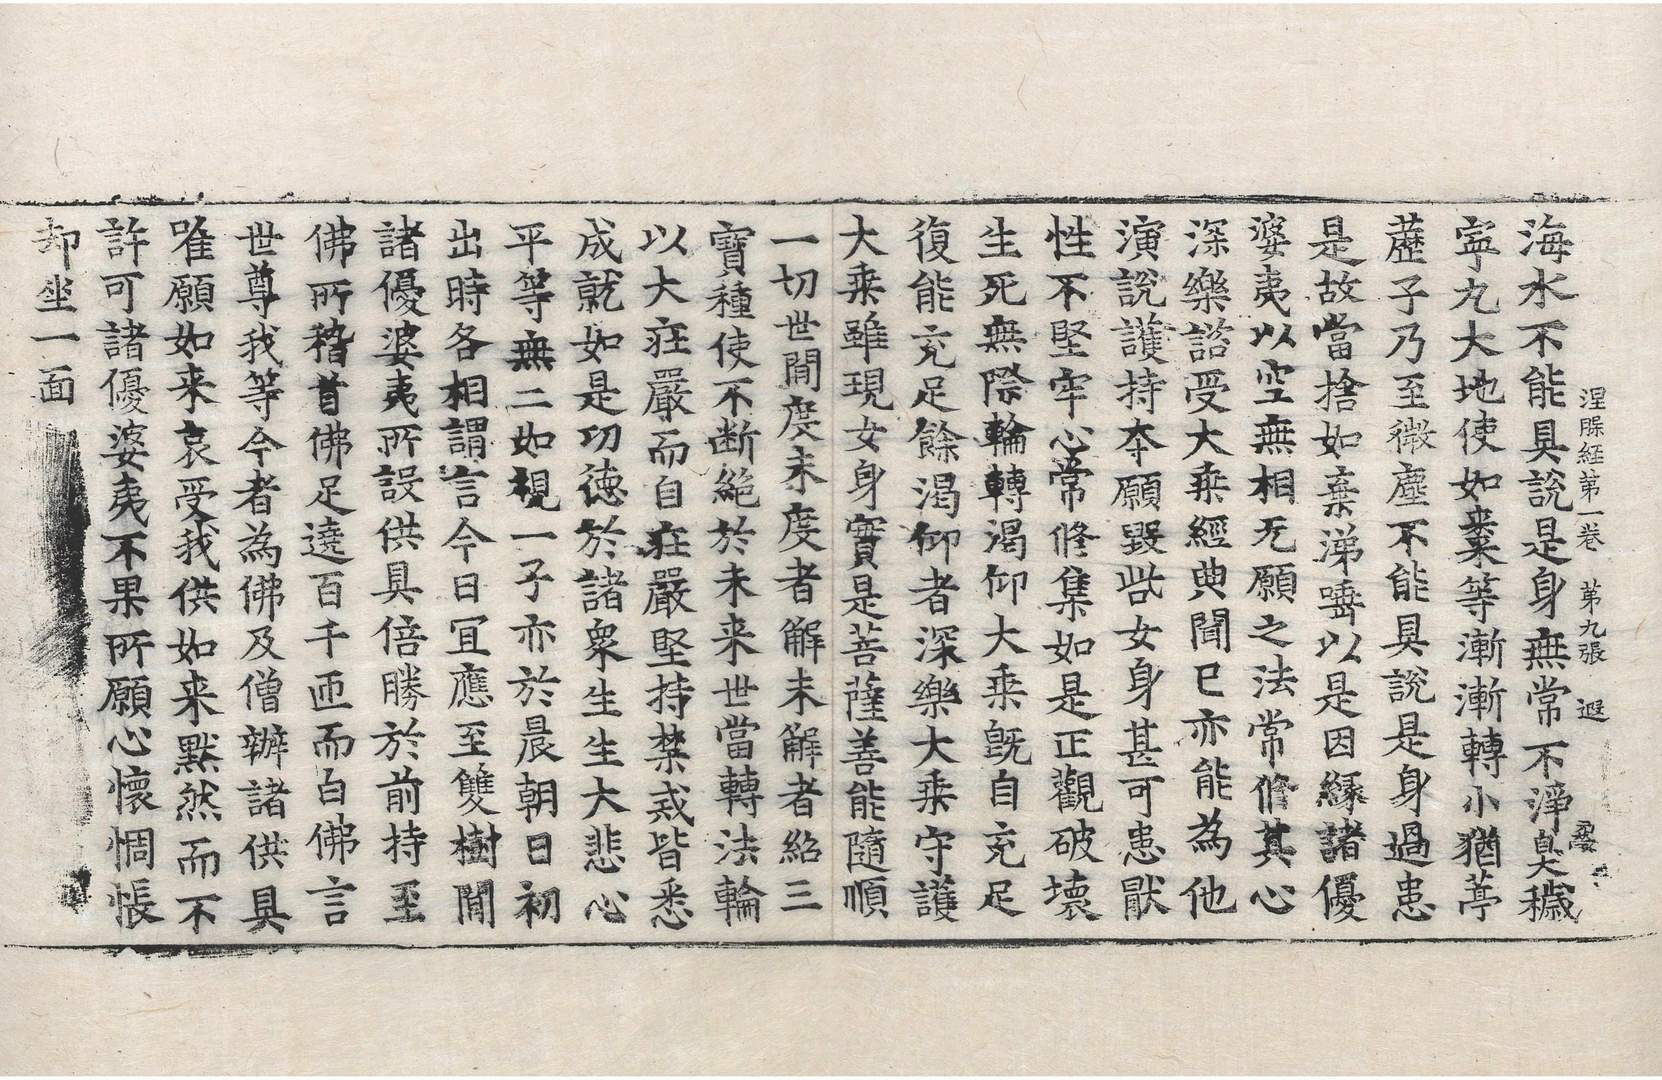 涅脎経第一卷 第九張 遐
海水不能具說是身無常不淨臭穢
寧丸大地使如棗等漸漸轉小猶葶
藶子乃至微塵不能具說是身過患
是故當捨如棄涕唾以是因緣諸優
婆夷以空無相无願之法常修其心
深樂諮受大乘經典聞已亦能為他
演說護持本願毀呰女身甚可患猒
性不堅牢心常修集如是正觀破壞
生死無際輪轉渴仰大乘旣自充足
復能充足餘渴仰者深樂大乘守護
大乘雖現女身實是菩薩善能隨順
一切世間度未度者解未解者紹三
寶種使不断絕於未来世當轉法輪
以大莊嚴而自莊嚴堅持禁戒皆悉
成就如是功德於諸衆生生大悲心
平等無二如視一子亦於晨朝日初
出時各相謂言今日冝應至雙樹間
諸優婆夷所設供具倍勝於前持至
佛所稽首佛足遶百千匝而白佛言
世尊我等今者為佛及僧辦諸供具
唯願如来哀受我供如来黙然而不
許可諸優婆夷不果所願心懷惆悵
却坐一面